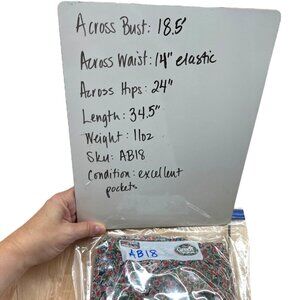 Across Bust: 18.5"
Across Waist: 14" elastic
Across Hips: 24"
Length: 34.5"
Weight: 11oz
Sku: AB18
Condition: excellent
pockets
AB18